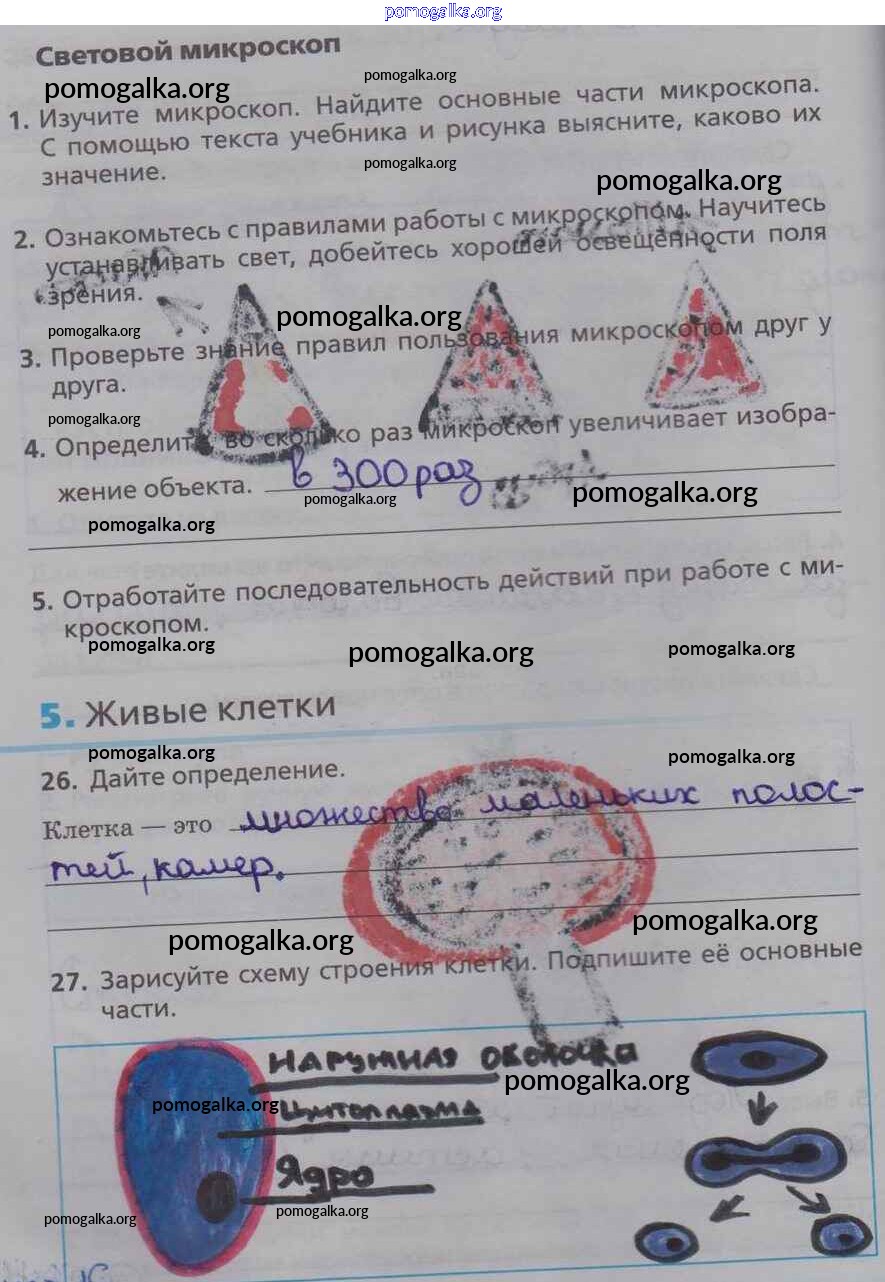 pomogalka.org
Световой микроскоп
pomogalka.org pomogalka.org
1. Изучите микроскоп. Найдите основные части микроскопа.
С помощью текста учебника и рисунка выясните, каково их
значение.
pomogalka.org
pomogalka.org
2. Ознакомьтесь с правилами работы с микроскопом. Научитесь
устанавливать свет, добейтесь хорошей освещённости поля
зрения.
pomogalka.org pomogalka.org
3. Проверьте знание правил пользования микроскопом друг у
друга.
pomogalka.org
4. Определите, во сколько раз микроскоп увеличивает изобра-
жение объекта. в 300 раз
pomogalka.org pomogalka.org
pomogalka.org
5. Отработайте последовательность действий при работе с ми-
кроскопом.
pomogalka.org pomogalka.org pomogalka.org
5. Живые клетки
pomogalka.org pomogalka.org
26. Дайте определение.
Клетка — это множество маленьких полос-
тей, камер.
pomogalka.org pomogalka.org
27. Зарисуйте схему строения клетки. Подпишите её основные
части.
Наружная оболочка
pomogalka.org
pomogalka.org
Цитоплазма
Ядро
pomogalka.org pomogalka.org